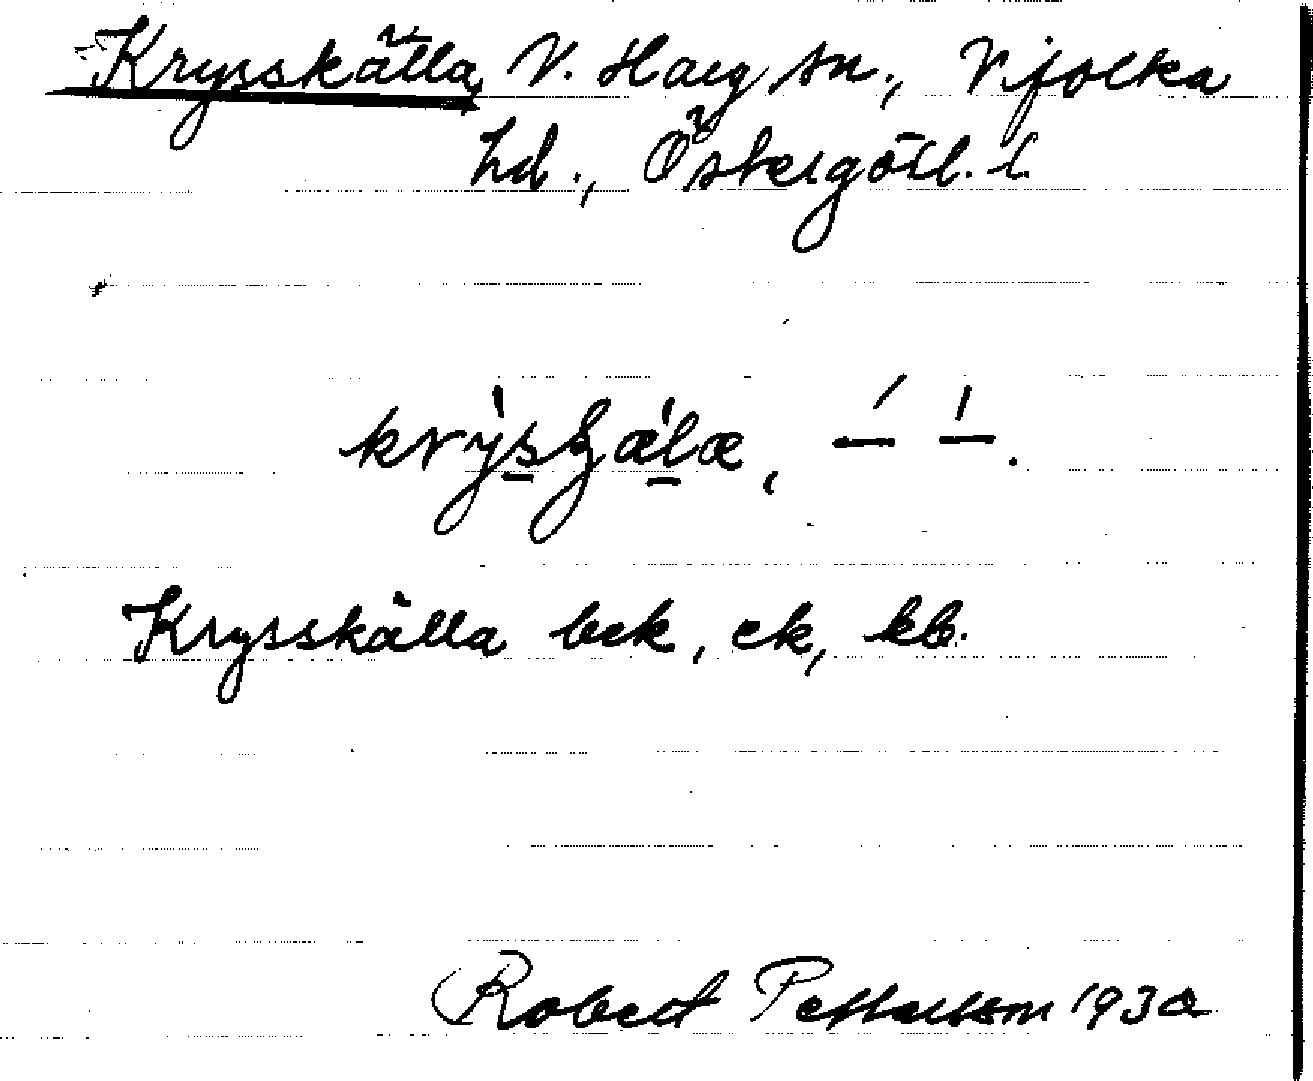 Krysskälla, V. Harg sn., Vifolka
hd., Östergötl. l.
krýsʒ̨æ̀læ, — —.
Krysskälla bek, ek, kb.
Robert Pettersson 1930